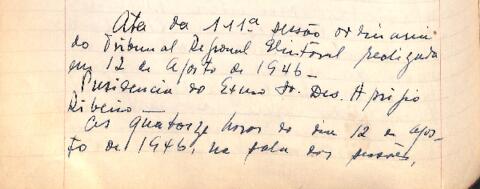 Ata da 111ª sessão ordinaria
do Tribunal Regional Eleitoral realizada
em 12 de Agosto de 1946 –
Presidencia do Exmo Sr. Des. Apripio
Ribeiro –
As quatorze horas do dia 12 de Agos-
to de 1946, na sala das sessões,